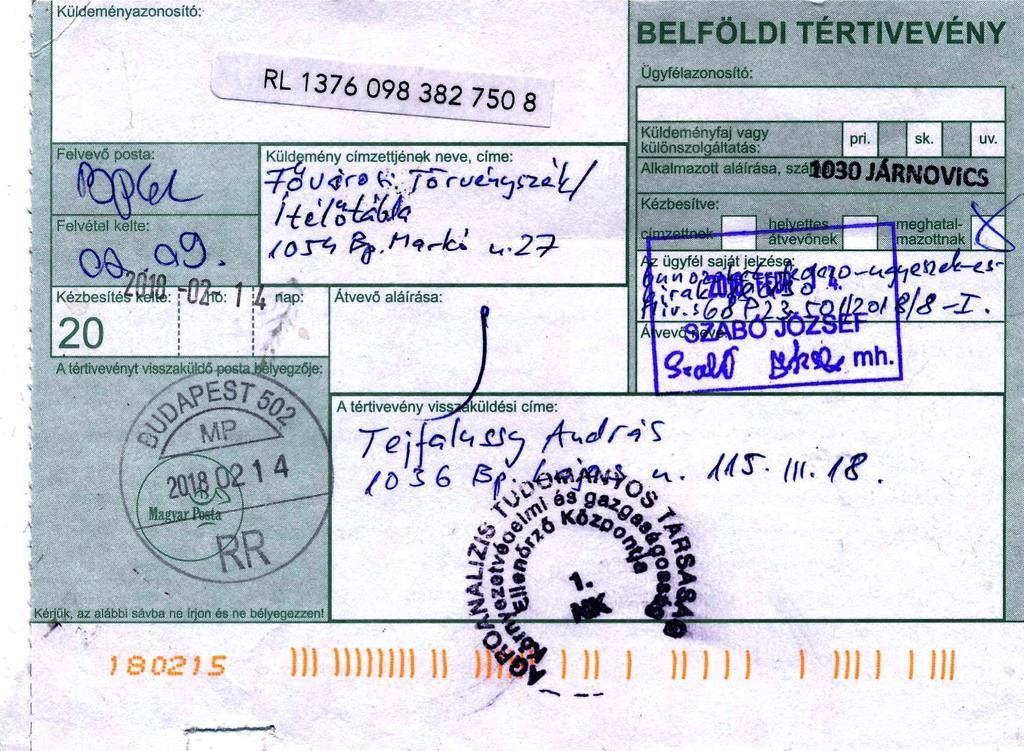 Küldeményazonosító:
RL 1376 098 382 750 8
BELFÖLDI TÉRTIVEVÉNY
Ügyfélazonosító:
Küldeményfaj vagy
különszolgáltatás:
pri. sk. uv.
Alkalmazott aláírása,
1030 JÁRNOVICS
Kézbesítve:
címzettnek
helyettes
átvevőnek
meghatal-
mazottnak
Felvevő posta:
Küldemény címzettjének neve, címe:
Fővárosi Törvényszék/
Ítélőtábla
1054 Bp. Markó u. 27
Felvétel kelte:
02. 09.
2018 -02- 14
Kézbesítés kelte: hó: nap:
20
Átvevő aláírása:
Az ügyfél saját jelzése:
P.23.501/2018/8-I.
Átvevő neve:
SZABÓ JÓZSEF
Szabó mh.
A tértivevényt visszaküldő posta bélyegzője:
BUDAPEST 502
MP
2018 02 14
Magyar Posta
RR
A tértivevény visszaküldési címe:
Tejfalussy András
1036 Bp. Lajos u. 115. III. 18.
AGROANALIZIS TUDOMÁNYOS TÁRSASÁG
Környezetvédelmi és gazdaságossági
Ellenőrző Központja
1.
Kérjük, az alábbi sávba ne írjon és ne bélyegezzen!
180215